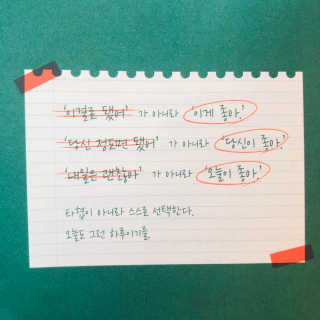 '이걸로 됐어' 가 아니라 '이게 좋아.'
'당신 정도면 됐어' 가 아니라 '당신이 좋아.'
'내일은 괜찮아' 가 아니라 '오늘이 좋아.'
타협이 아니라 스스로 선택한다.
오늘도 그런 하루이기를.